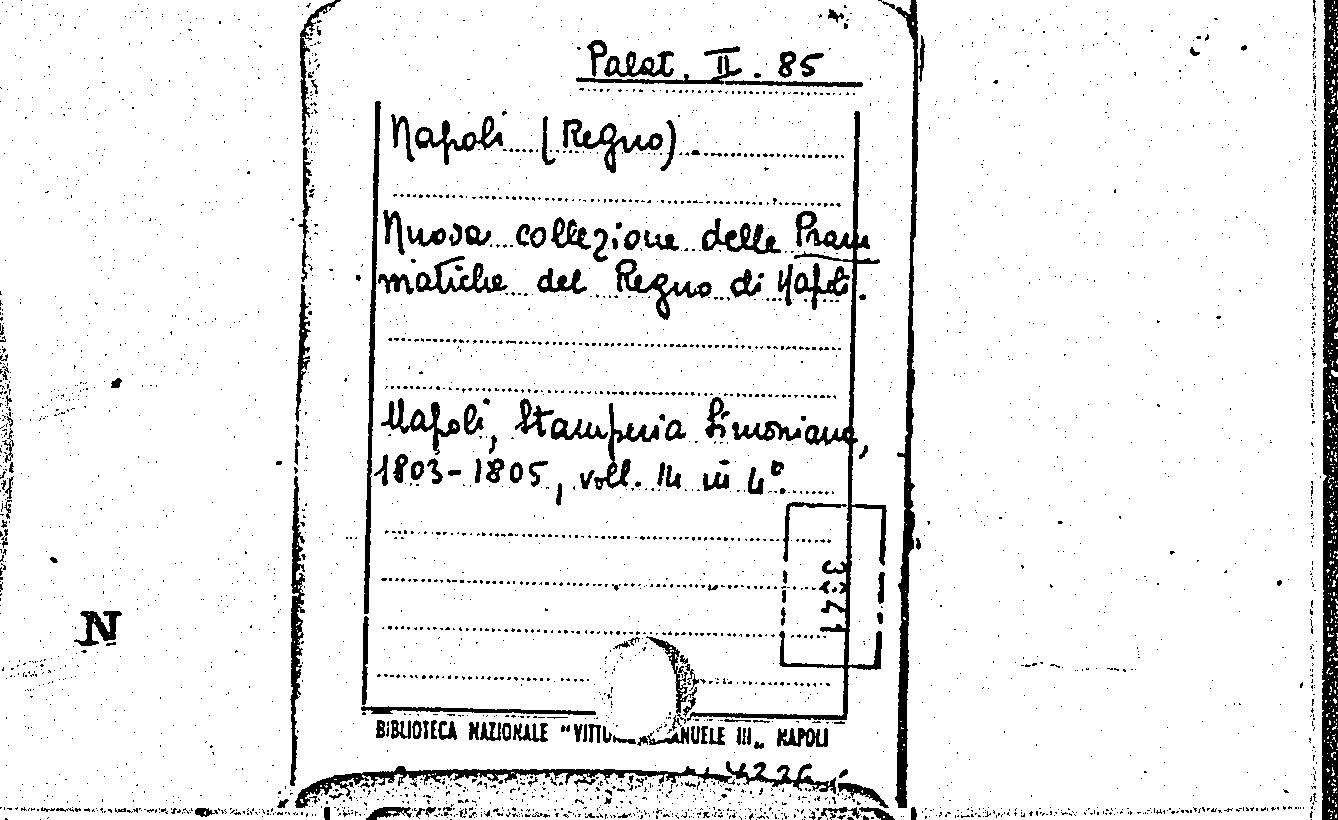 Palat. II. 85
Napoli (Regno).
Nuova collezione delle Pram
matiche del Regno di Napoli.
Napoli, Stamperia Simoniana,
1803-1805, voll. 14 in 4°.
3341
N
BIBLIOTECA NAZIONALE "VITTO ANUELE III„ NAPOLI